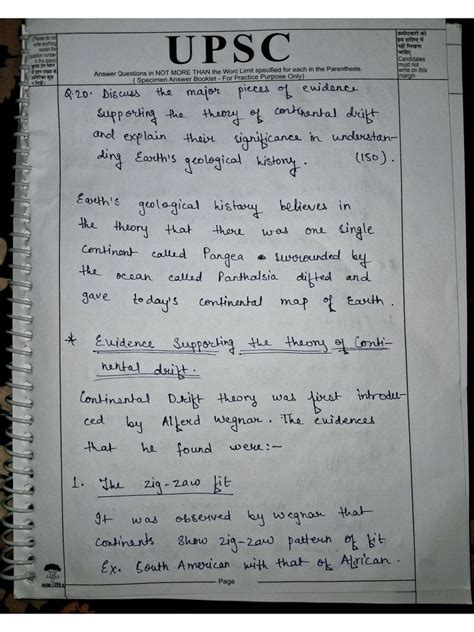 UPSC
Answer Questions in NOT MORE THAN the Word Limit specified for each in the Parenthesis.
( Specimen Answer Booklet - For Practice Purpose Only)
Candidates
must not
write on this
margin
Q.20. Discuss the major pieces of evidence
supporting the theory of continental drift
and explain their significance in understan-
ding Earth's geological history. (150).
Earth's geological history believes in
the theory that there was one single
continent called Pangea surrounded by
the ocean called Panthalsia difted and
gave today's continental map of Earth.
* Evidence Supporting the theory of Conti-
nental drift.
Continental Drift theory was first introdu-
ced by Alferd Wegnar. The evidences
that he found were:-
1. The zig-zaw fit
It was observed by Wegnar that
continents show zig-zaw pattern of fit
Ex. South American with that of African.
Page